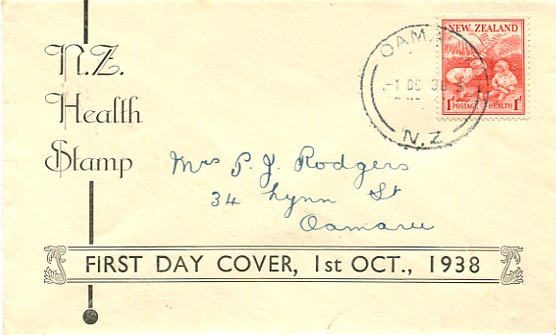 N.Z.
Health
Stamp
OAMARU
-1 OC 38
N.Z
NEW ZEALAND
1d POSTAGE HEALTH 1d
Mrs P. J. Rodgers
34 Lynn St
Oamaru
FIRST DAY COVER, 1st OCT., 1938